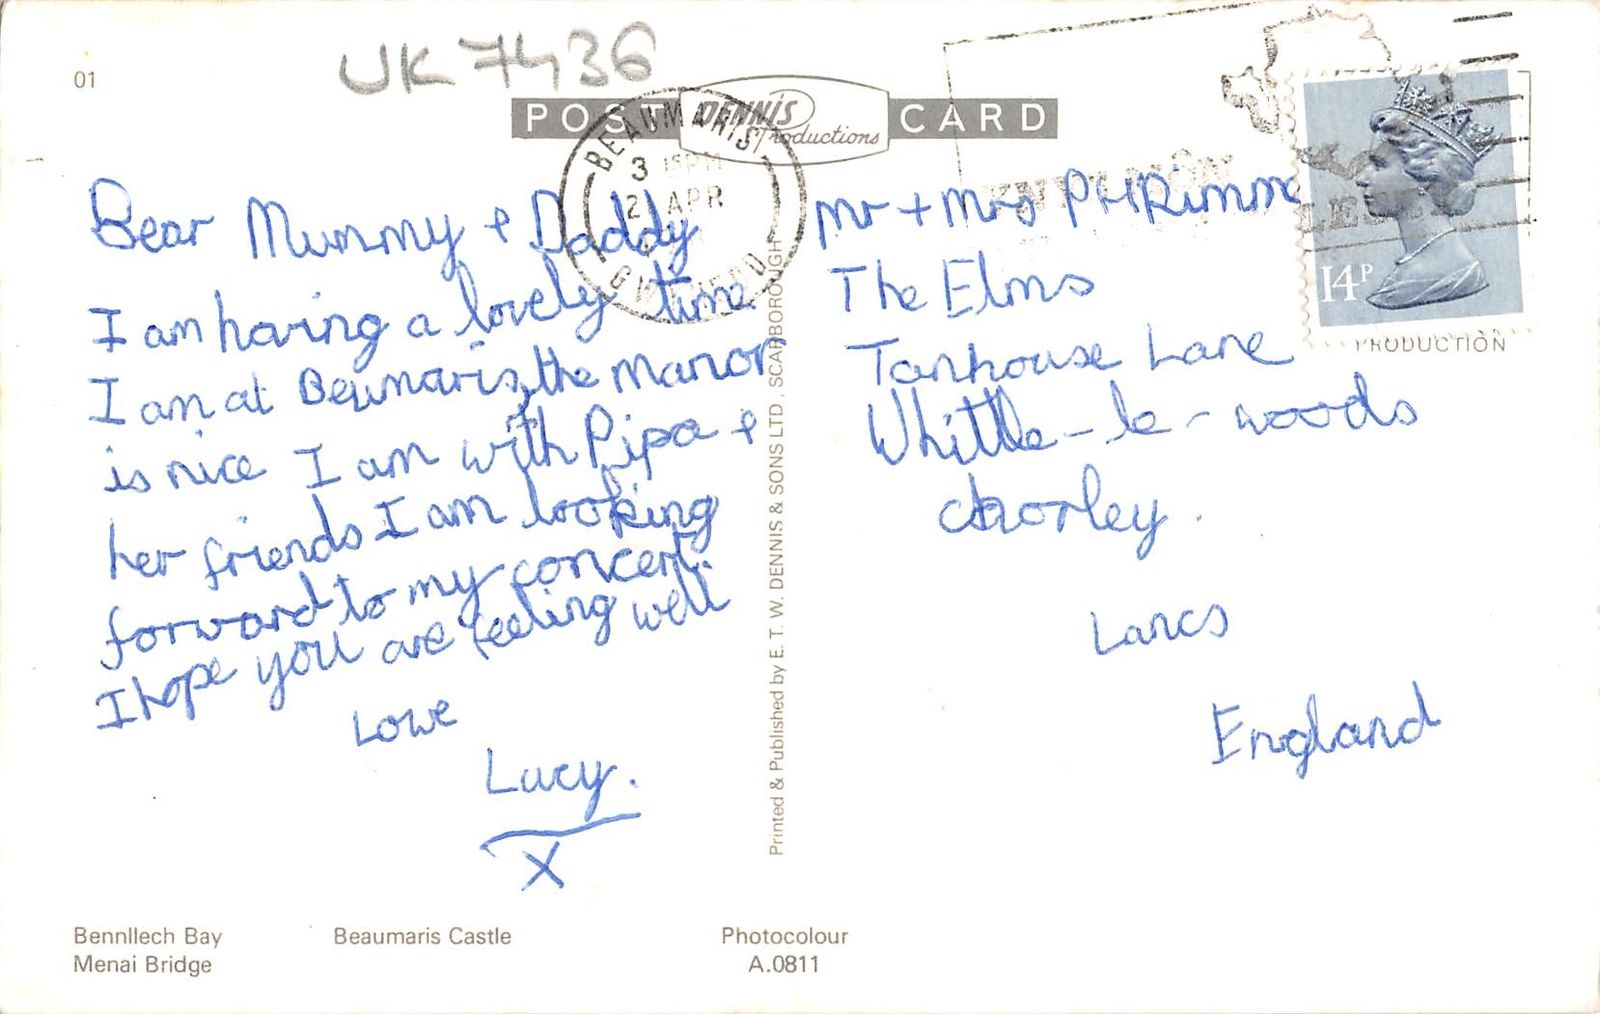 01
UK 7436
POST
DENNIS
Productions
CARD
BEAUMARIS
3 15PM
2 APR
GWYNEDD
14P
PRODUCTION
Bear Mummy + Daddy
I am having a lovely time
I am at Beumaris, the manor
is nice I am with Pipa +
her friends I am looking
forward to my concert.
I hope you are feeling well
Love
Lucy.
X
Mr + Mrs PH Rimm
The Elms
Tanhouse Lane
Whittle-le-woods
chorley.
Lancs
England
Printed & Published by E. T. W. DENNIS & SONS LTD., SCARBOROUGH
Bennllech Bay
Menai Bridge
Beaumaris Castle
Photocolour
A.0811